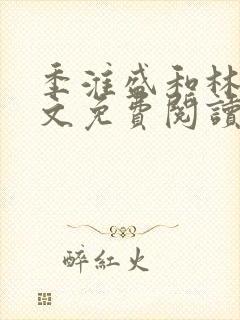 季淮盛和林
文免費閱讀
醉紅火